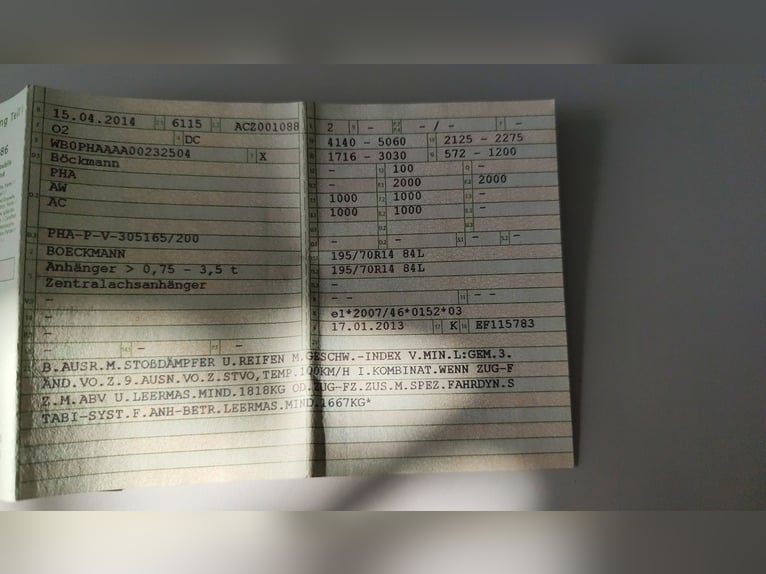 ng Teil
15.04.2014 6115 ACZ001088 2 - - / - -
O2 DC 4140 - 5060 2125 - 2275
WB0PHAAAA00232504 X 1716 - 3030 572 - 1200
Böckmann - 100 -
PHA - 2000 2000
AW 1000 1000 -
AC 1000 1000 -
PHA-P-V-305165/200 - - - -
BOECKMANN 195/70R14 84L
Anhänger > 0,75 - 3,5 t 195/70R14 84L
Zentralachsanhänger -
- - - - -
- e1*2007/46*0152*03
- 17.01.2013 K EF115783
- - -
B.AUSR.M.STOßDÄMPFER U.REIFEN M.GESCHW.-INDEX V.MIN.L:GEM.3.
ÄND.VO.Z.9.AUSN.VO.Z.STVO,TEMP.100KM/H I.KOMBINAT.WENN ZUG-F
Z.M.ABV U.LEERMAS.MIND.1818KG OD.ZUG-FZ.ZUS.M.SPEZ.FAHRDYN.S
TABI-SYST.F.ANH-BETR.LEERMAS.MIND.1667KG*